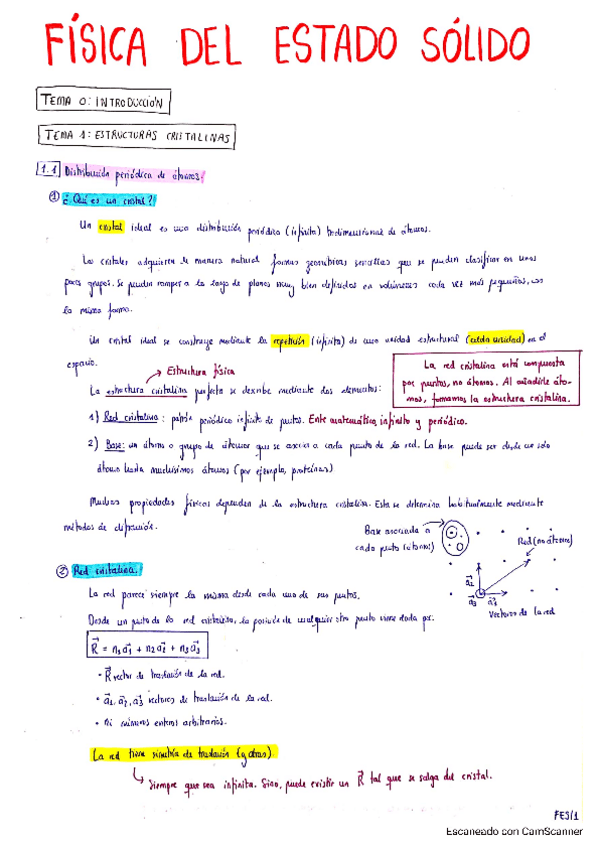 FÍSICA DEL ESTADO SÓLIDO
TEMA 0: INTRODUCCIÓN
TEMA 1: ESTRUCTURAS CRISTALINAS
1.1 Distribución periódica de átomos:
① ¿Qué es un cristal?
Un cristal ideal es una distribución periódica (infinita) tridimensional de átomos.
Los cristales adquieren de manera natural formas geométricas sencillas que se pueden clasificar en unos
pocos grupos. Se pueden romper a lo largo de planos muy bien definidos en volúmenes cada vez más pequeños, con
la misma forma.
Un cristal ideal se construye mediante la repetición (infinita) de una unidad estructural (celda unidad) en el
espacio.
Estructura física
La estructura cristalina perfecta se describe mediante dos elementos:
La red cristalina está compuesta
por puntos, no átomos. Al añadirle áto-
mos, formamos la estructura cristalina.
1) Red cristalina: patrón periódico infinito de puntos. Ente matemático, infinito y periódico.
2) Base: un átomo o grupo de átomos que se asocia a cada punto de la red. La base puede ser desde un solo
átomo hasta muchísimos átomos (por ejemplo, proteínas)
Muchas propiedades físicas dependen de la estructura cristalina. Esta se determina habitualmente mediante
métodos de difracción.
Base asociada a
cada punto (átomos)
Red (no átomos)
a⃗2
a⃗3 a⃗1
Vectores de la red
② Red cristalina.
La red parece siempre la misma desde cada uno de sus puntos.
Desde un punto de la red cristalina, la posición de cualquier otro punto viene dada por:
R⃗ = n1a⃗1 + n2a⃗2 + n3a⃗3
· R⃗ vector de traslación de la red.
· a⃗1, a⃗2, a⃗3 vectores de traslación de la red.
· ni números enteros arbitrarios.
La red tiene simetría de traslación (y otras).
↳ Siempre que sea infinita. Sino, puede existir un R⃗ tal que se salga del cristal.
FES/1
Escaneado con CamScanner